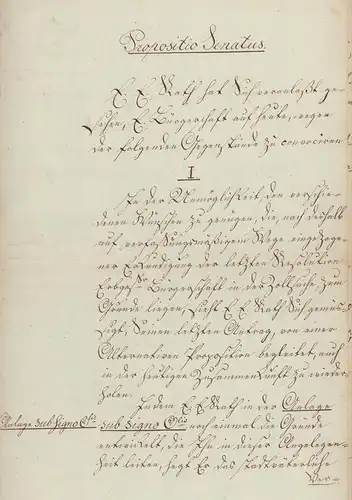 Propositio Senatus.
E. E. Rath hat Sich veranlaßt ge-
sehen, E. Bürgerschaft auf heute, wegen
der folgenden Gegenstände zu convociren
I
In der Unmöglichkeit, den verschie-
denen Wünschen zu genügen, die, nach deshalb
auf verfassungsmäßigem Wege eingezoge-
ner Erkundigung der letzten Resolution
Erbges. Bürgerschaft in der Zollsache zum
Grunde liegen, sieht E. E. Rath Sich gemüs-
sigt, Seinen letzten Antrag, von einer
Alternativen Proposition begleitet, auch
in der heutigen Zusammenkunft zu wieder-
holen.
Indem E. E. Rath in der Anlage
Anlage sub Signo
sub Signo noch einmal die Gründe
entwickelt, die Ihn in dieser Angelegen-
heit leiten, hegt Er das stadtväterliche
Ver-